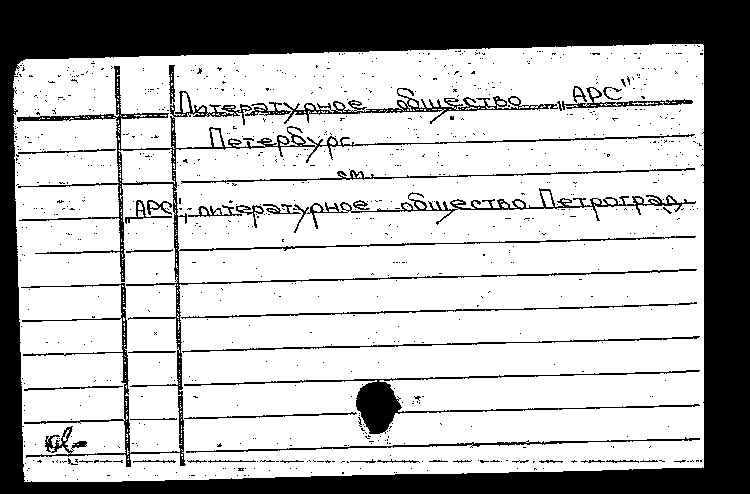 Литературное общество „АРС".
Петербург.
см.
„АРС", литературное общество Петроград.